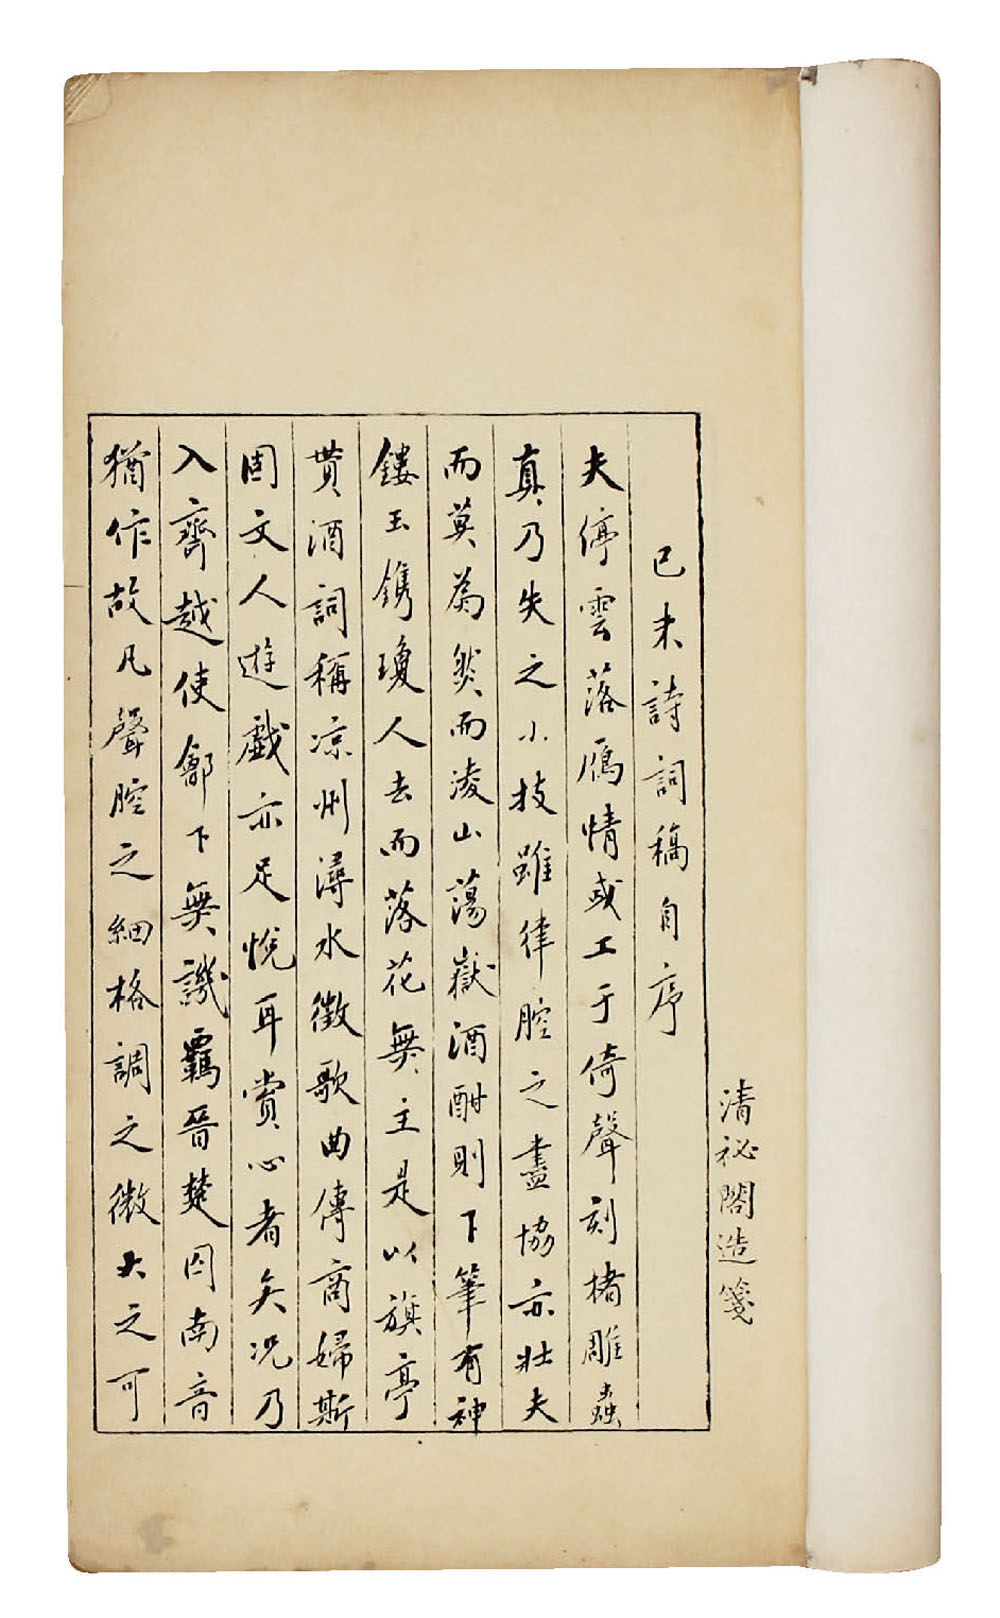 己未詩詞稿自序
夫停雲落鴈情或工于倚聲刻楮雕蟲
真乃失之小技雖律腔之盡協亦壯夫
而莫為然而淩山蕩嶽酒酣則下筆有神
鏤玉鐫瓊人去而落花無主是以旗亭
貰酒詞稱凉州潯水徵歌曲傳商婦斯
固文人遊戲亦足悅耳賞心者矣况乃
入齊越使鄶下無譏羈晉楚囚南音
猶作故凡聲腔之細格調之微大之可
清祕閣造箋